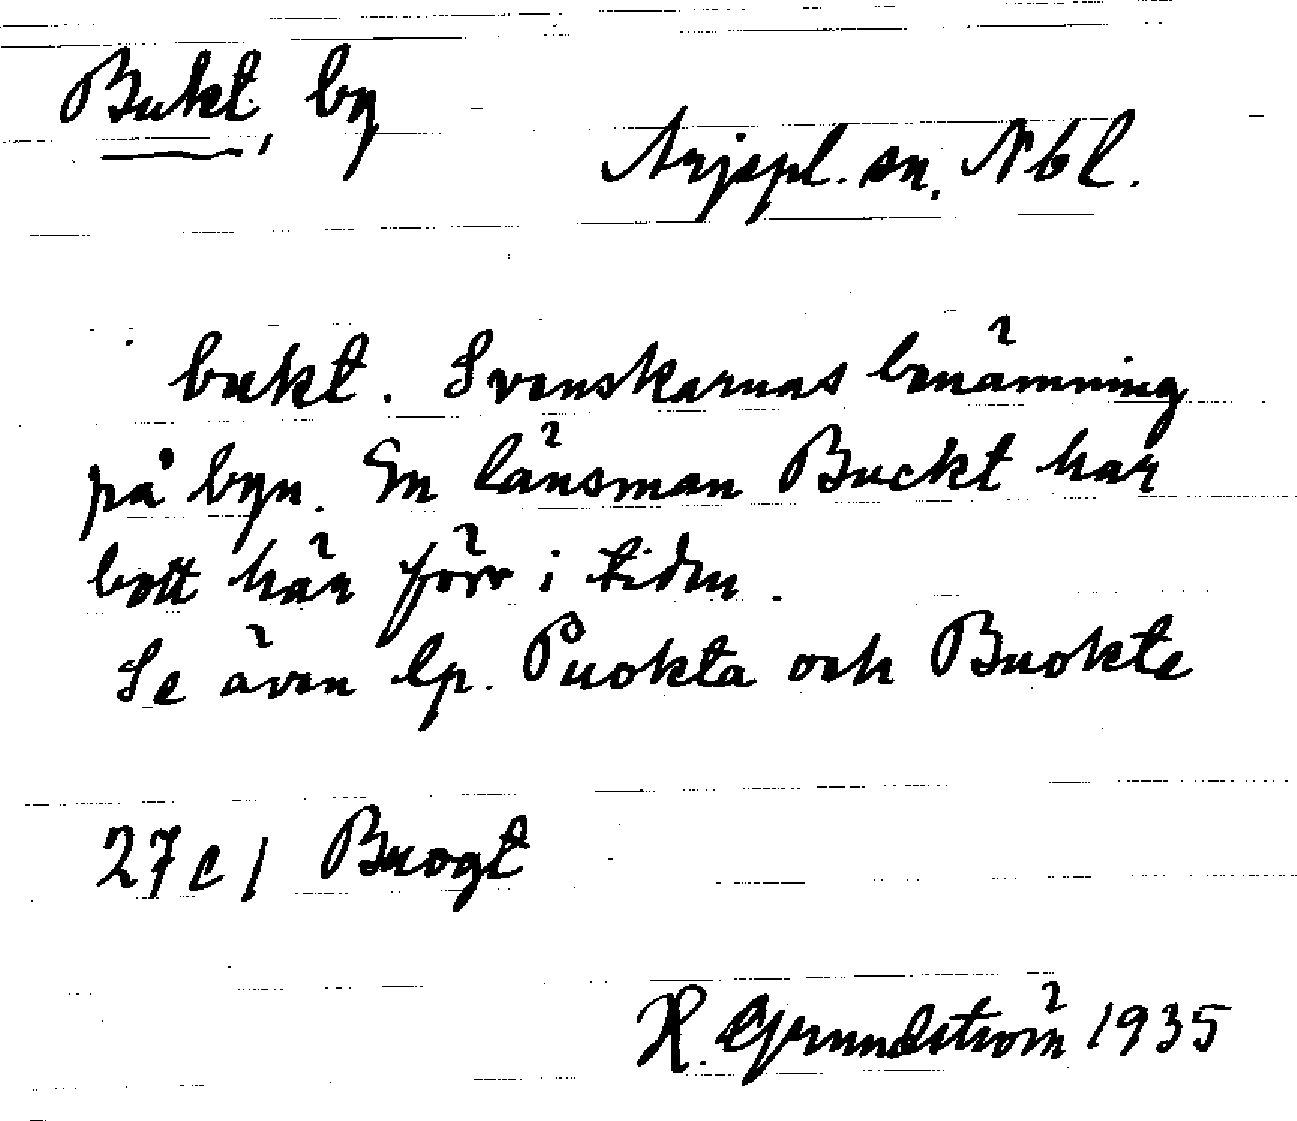 Bukt, by
Arjepl. sn. Nbl.
bukt. Svenskarnas benämning
på byn. En länsman Buckt har
bott här förr i tiden.
Se även lp. Puokta och Buokte
27 c / Buogt
H. Grundström 1935